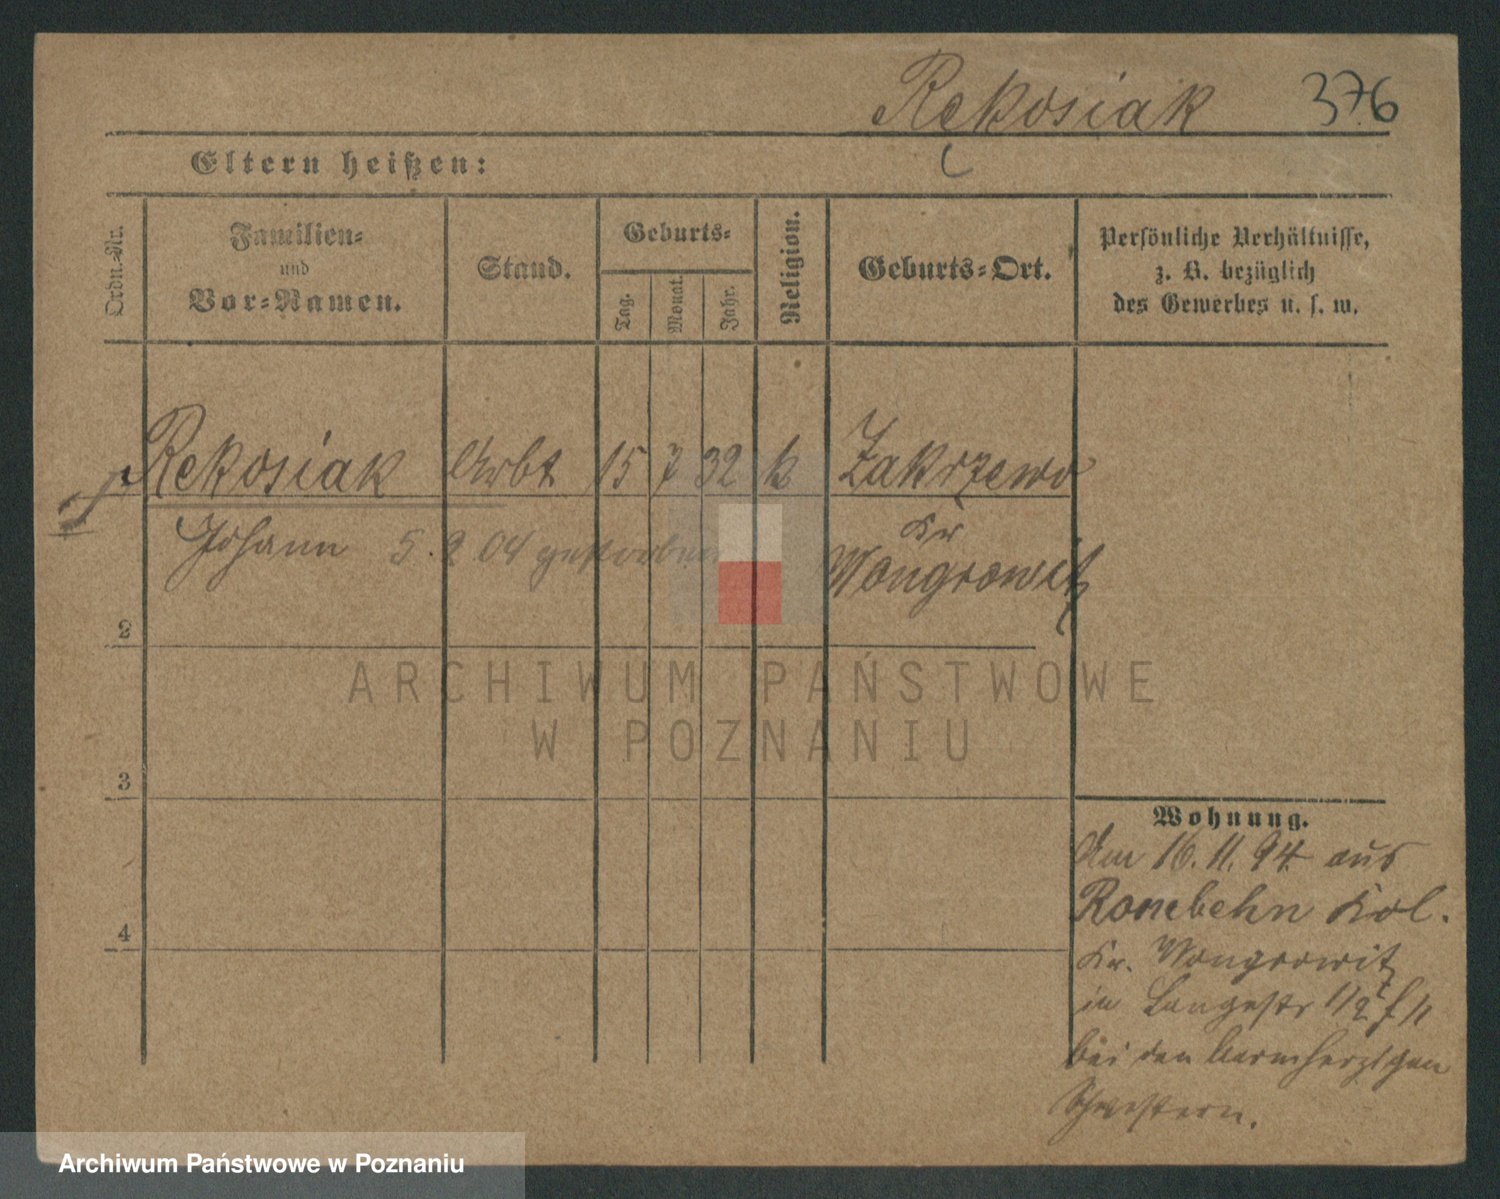 Rekosiak 376
Eltern heißen:
Ordn.-Nr.
Familien-
und
Vor-Namen.
Stand.
Geburts-
Tag.
Monat.
Jahr.
Religion.
Geburts-Ort.
Persönliche Verhältnisse,
z. B. bezüglich
des Gewerbes u. s. w.
Rekosiak Arbt 15 7 32 k Zakrzewo
Johann 5. 2 04 gestorben
Kr
Wongrowitz
2
3
4
Wohnung.
Am 16. 11. 94 aus
Kol.
Kr. Wongrowitz
in Langestr 1/2
bei den barmherzigen
Schwestern.
ARCHIWUM PAŃSTWOWE
W POZNANIU
Archiwum Państwowe w Poznaniu